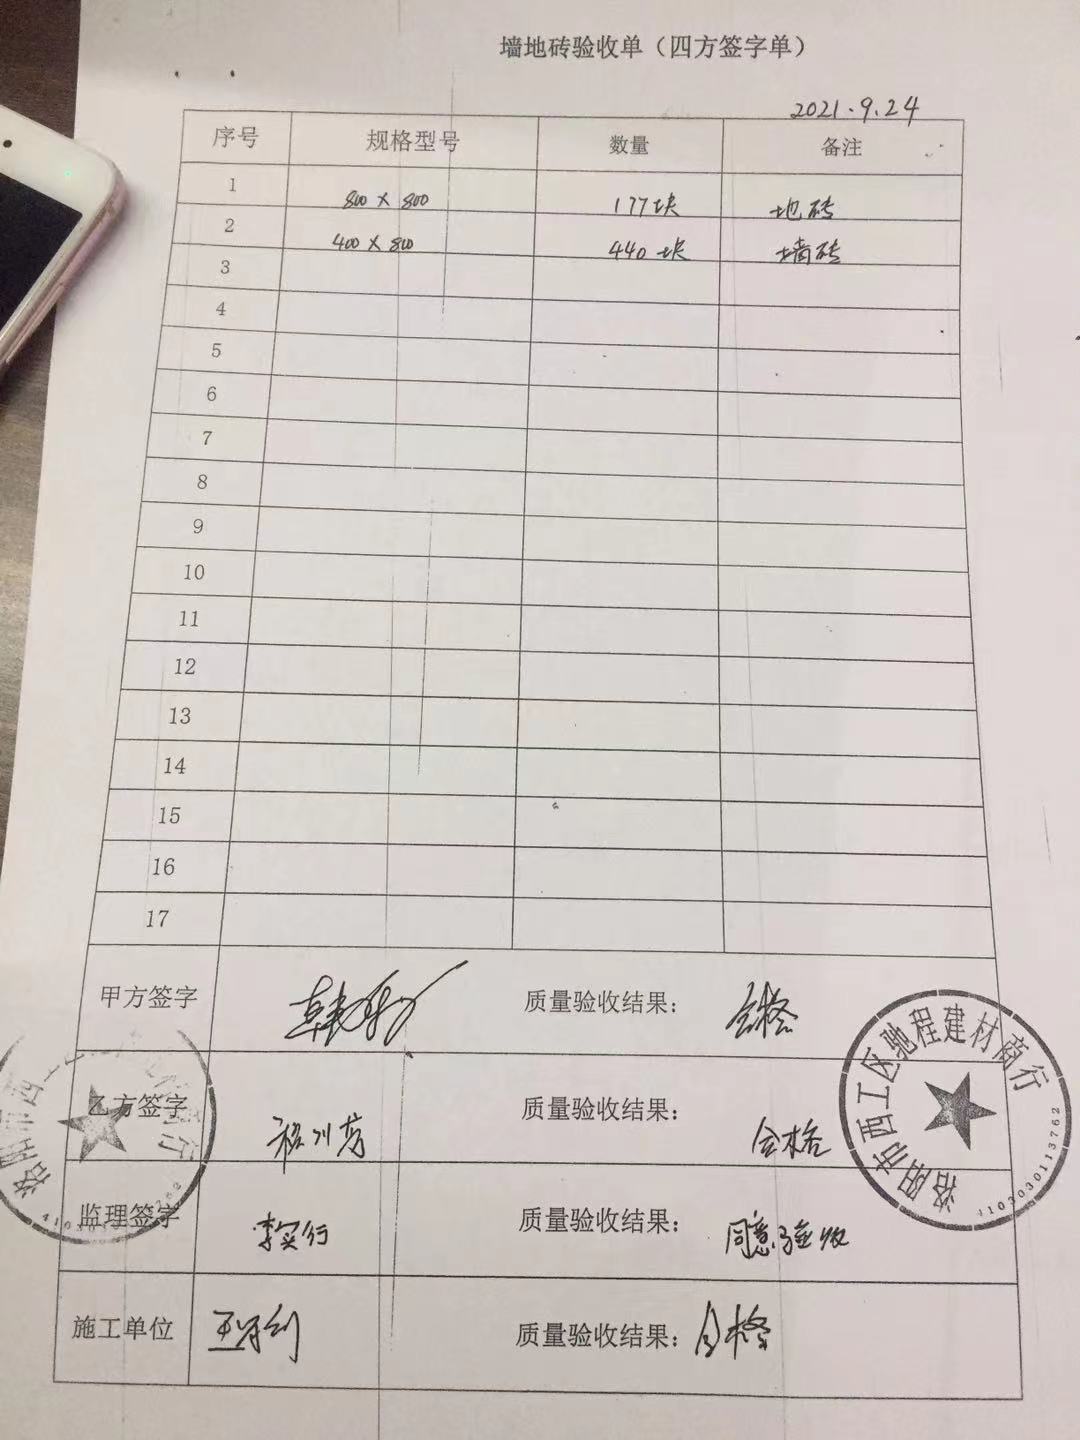 墙地砖验收单（四方签字单）
2021.9.24
序号 规格型号 数量 备注
1 800×800 177块 地砖
2 400×800 440块 墙砖
3
4
5
6
7
8
9
10
11
12
13
14
15
16
17
甲方签字 质量验收结果： 合格
乙方签字 质量验收结果： 合格
监理签字 李实行 质量验收结果： 同意验收
施工单位 质量验收结果： 合格
洛阳市西工区驰程建材商行
4103030113762